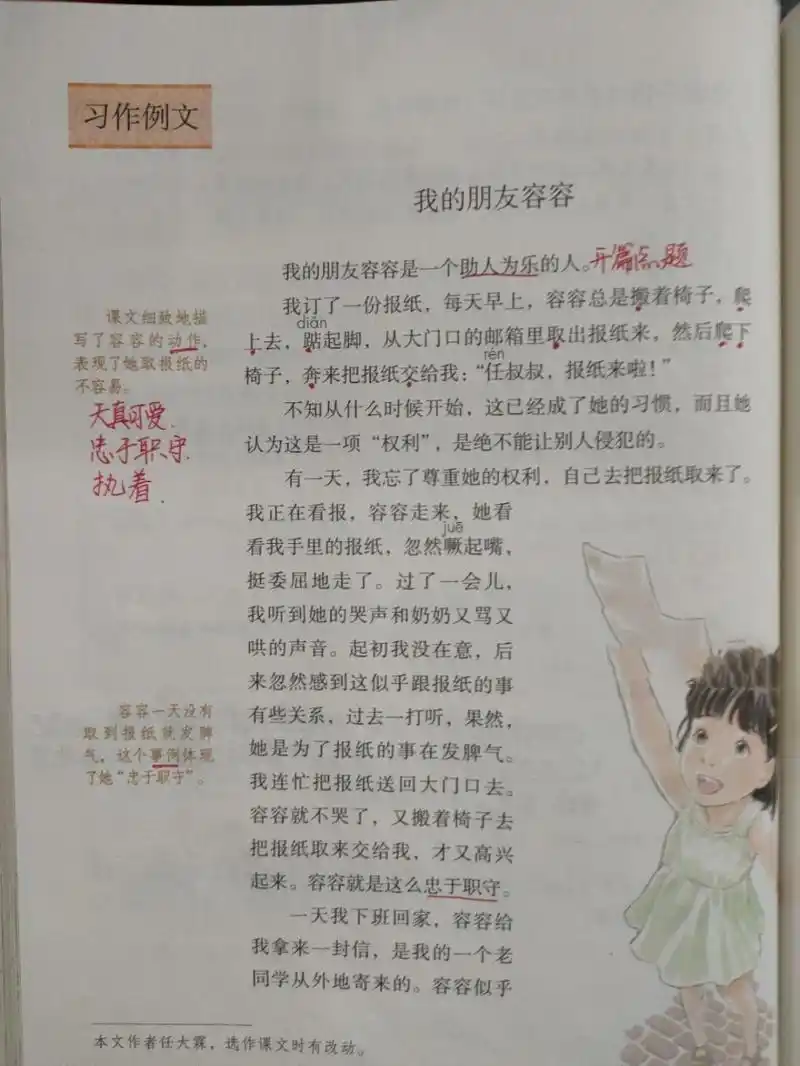 习作例文
我的朋友容容
我的朋友容容是一个助人为乐的人。开篇点题
我订了一份报纸，每天早上，容容总是搬着椅子，爬
diǎn
上去，踮起脚，从大门口的邮箱里取出报纸来，然后爬下
rén
椅子，奔来把报纸交给我：“任叔叔，报纸来啦！”
不知从什么时候开始，这已经成了她的习惯，而且她
认为这是一项“权利”，是绝不能让别人侵犯的。
有一天，我忘了尊重她的权利，自己去把报纸取来了。
我正在看报，容容走来，她看
juē
看我手里的报纸，忽然噘起嘴，
挺委屈地走了。过了一会儿，
我听到她的哭声和奶奶又骂又
哄的声音。起初我没在意，后
来忽然感到这似乎跟报纸的事
有些关系，过去一打听，果然，
她是为了报纸的事在发脾气。
我连忙把报纸送回大门口去。
容容就不哭了，又搬着椅子去
把报纸取来交给我，才又高兴
起来。容容就是这么忠于职守。
一天我下班回家，容容给
我拿来一封信，是我的一个老
同学从外地寄来的。容容似乎
课文细致地描
写了容容的动作，
表现了她取报纸的
不容易。
天真可爱.
忠于职守.
执着.
容容一天没有
取到报纸就发脾
气，这个事例体现
了她“忠于职守”。
本文作者任大霖，选作课文时有改动。